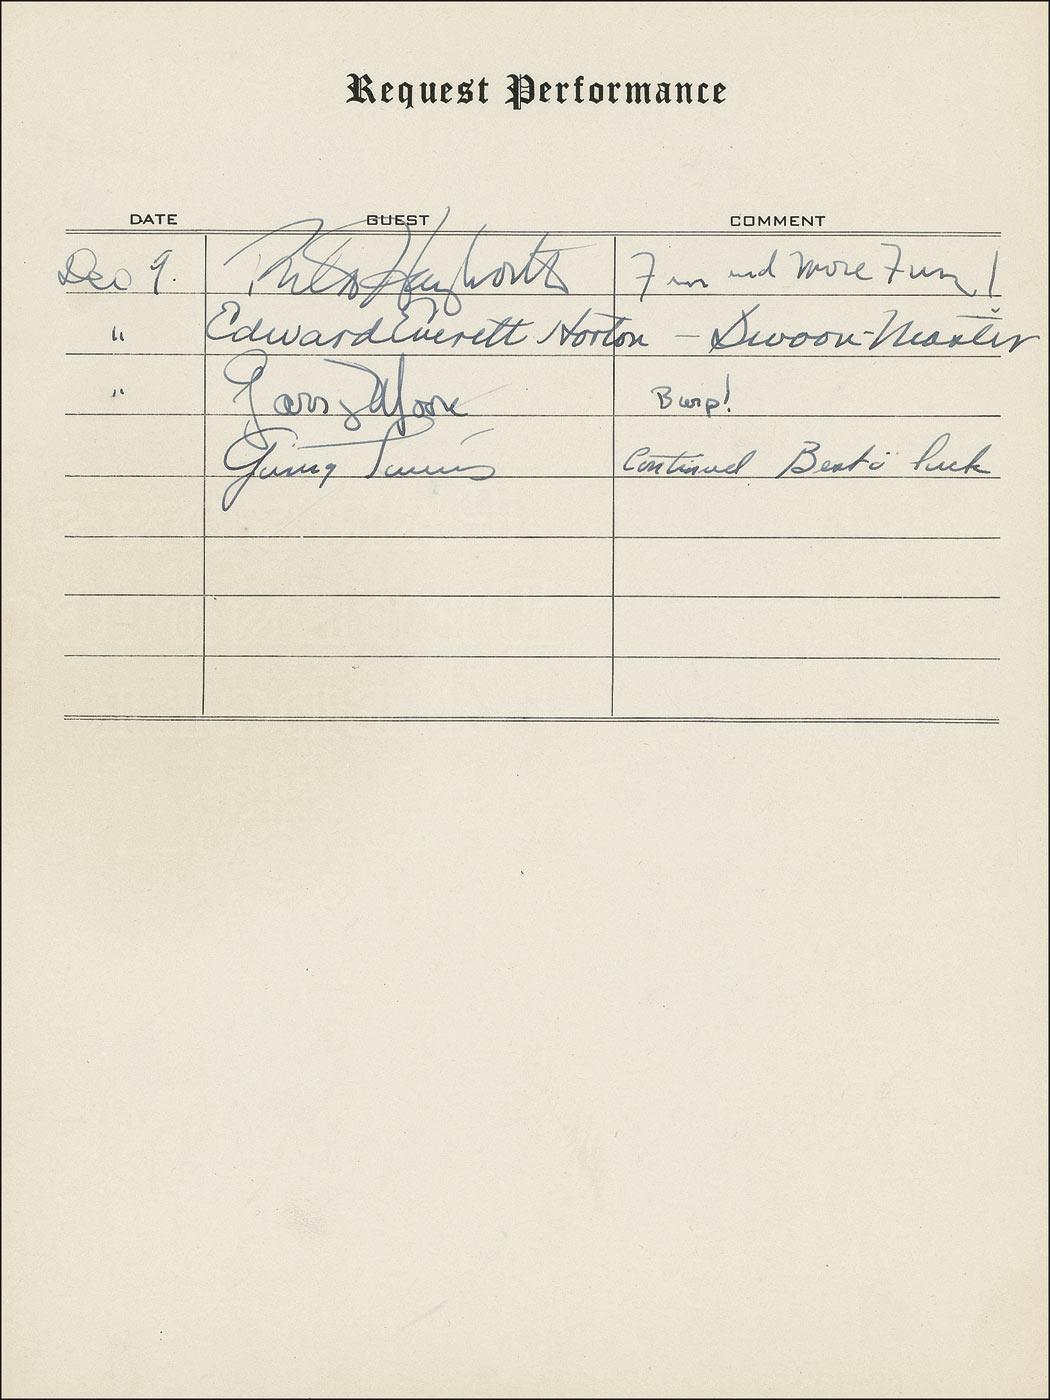 Request Performance
DATE GUEST COMMENT
Dec 9. Rita Hayworth Fun and More Fun!
" Edward Everett Horton — Swoon-Master
" Garry Moore Burp!
Ginny Simms Continued Best o' luck